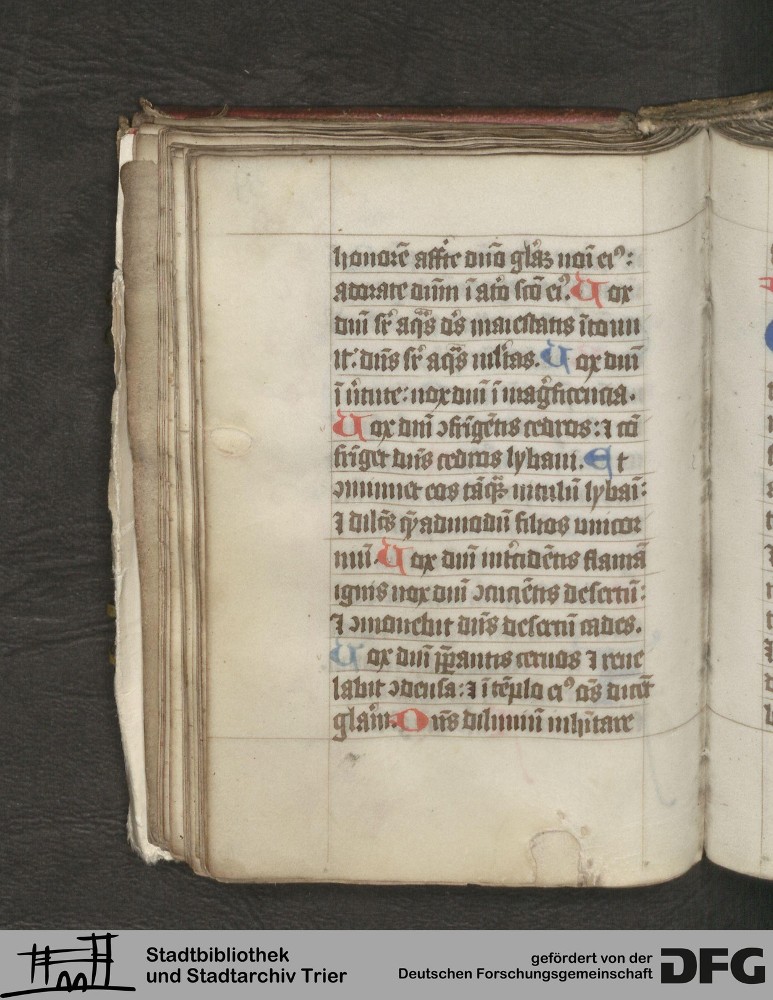 honorē affr̄te dn̄o gl'aꝫ noī ei⁹:
adorate dn̄m ī at'o sc̄o ei⁹. Uox
dn̄i sr̄ aq̄s d's maiestatis ītonu
it: dn̄s sr̄ aq̄s ml'tas. Uox dn̄i
ī v'tute: uox dn̄i ī mag'ficencia.
Uox dn̄i ↄfrīgētis cedros: ⁊ cō
frīget dn̄s cedros lybani. Et
ↄminuet eas tāq̄ꝫ uitulū lybaī:
⁊ dilc̄s q̄'admodū filius unicor
niū. Uox dn̄i int'cidētis flamā
ignis uox dn̄i ↄcutiētis desertū:
⁊ ↄmouebit dn̄s desertū cades.
Uox dn̄i p̄pantis ceruos ⁊ reue
labit ↄdensa: ⁊ ī tēplo ei⁹ oēs dicēt
gl'am. Dn̄s diluuiū inh'itare
Stadtbibliothek
und Stadtarchiv Trier
gefördert von der
Deutschen Forschungsgemeinschaft
DFG